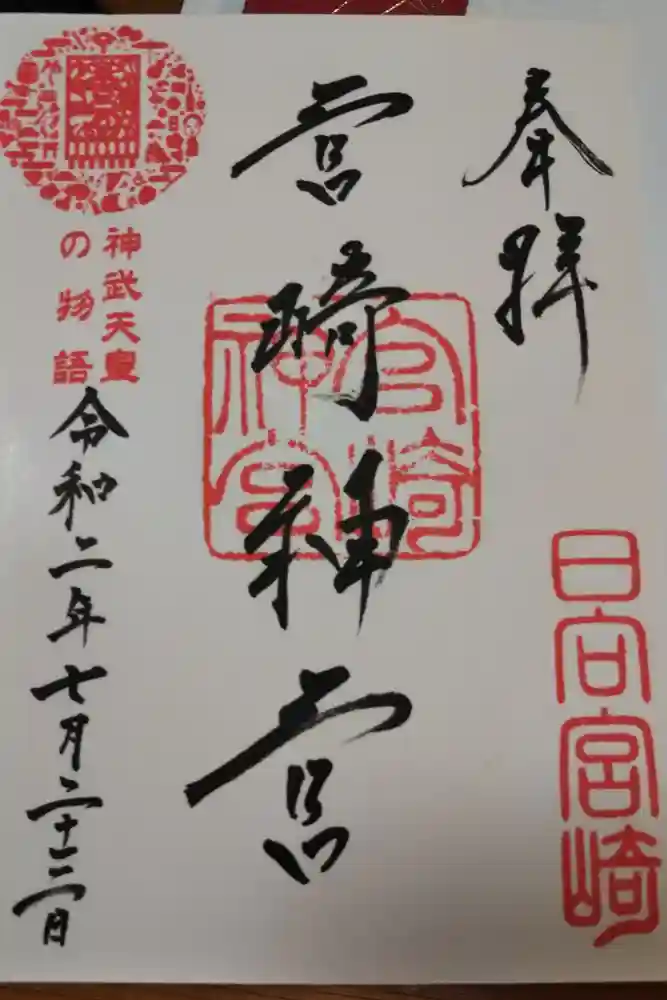 奉拝
日向宮崎
宮崎神宮
宮崎
神宮
神武天皇
の物語
令和二年七月二十二日